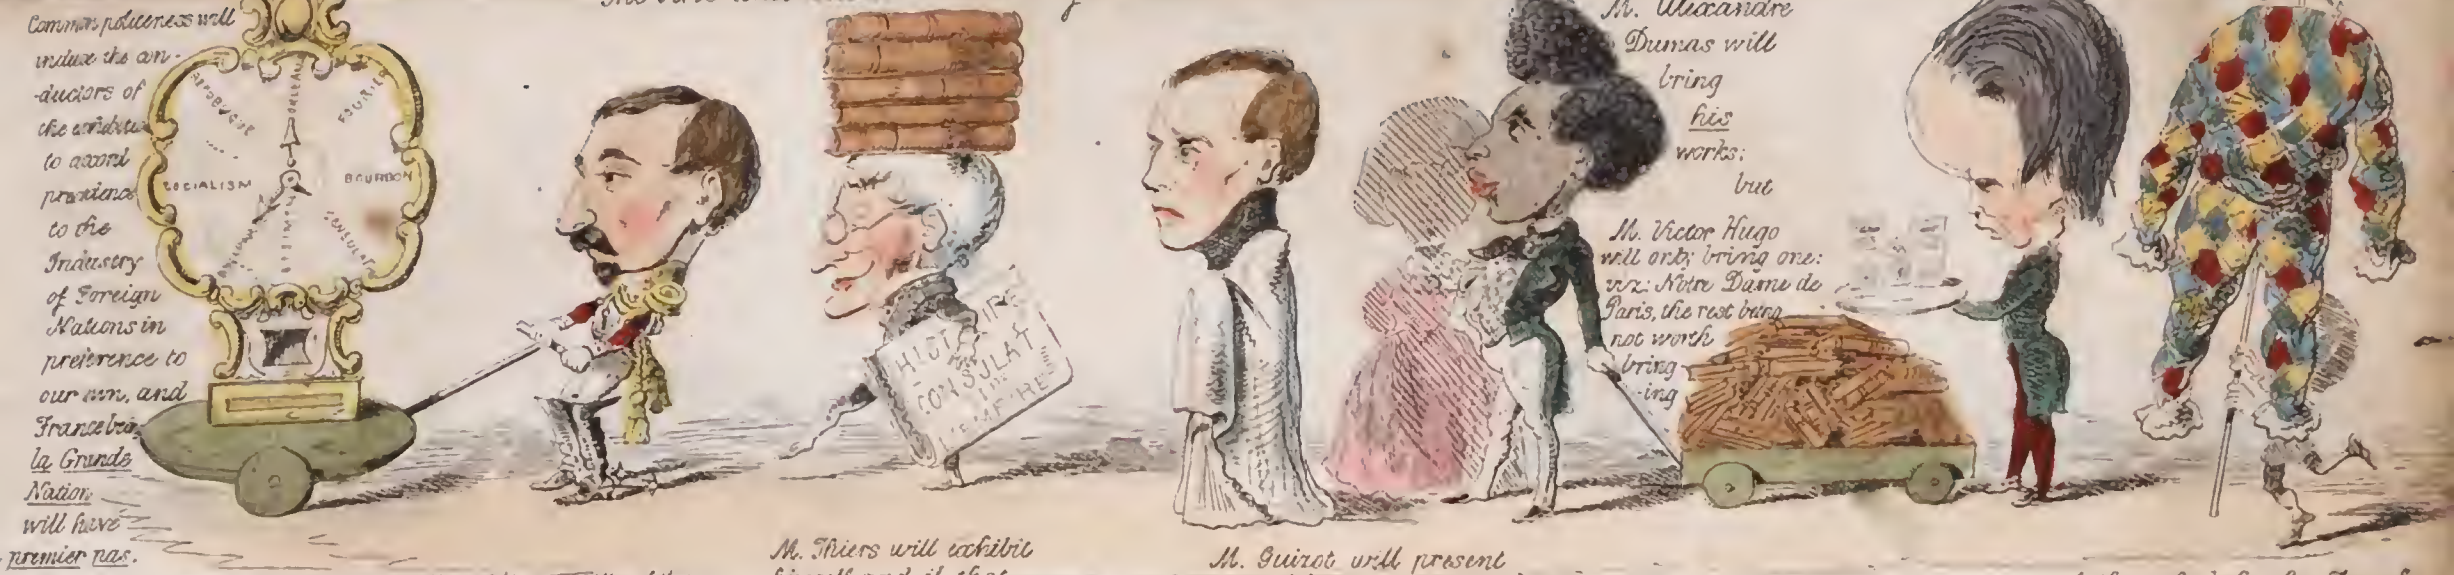 Common politeness will
induce the con-
-ductors of
the exhibition
to accord
precedence
to the
Industry
of Foreign
Nations in
preference to
our own, and
France being
la Grande
Nation
will have
premier pas.
ORLEANS
FOURIE
BOURBON
CONSULAT
SOCIALISM
HISTOIRE
DU
CONSULAT
ET DE
L'EMPIRE
M. Thiers will exhibit
himself and if that
M. Guizot will present
M. Alexandre
Dumas will
bring
his
works:
but
M. Victor Hugo
will only bring one:
viz: Notre Dame de
Paris, the rest being
not worth
bring-
-ing